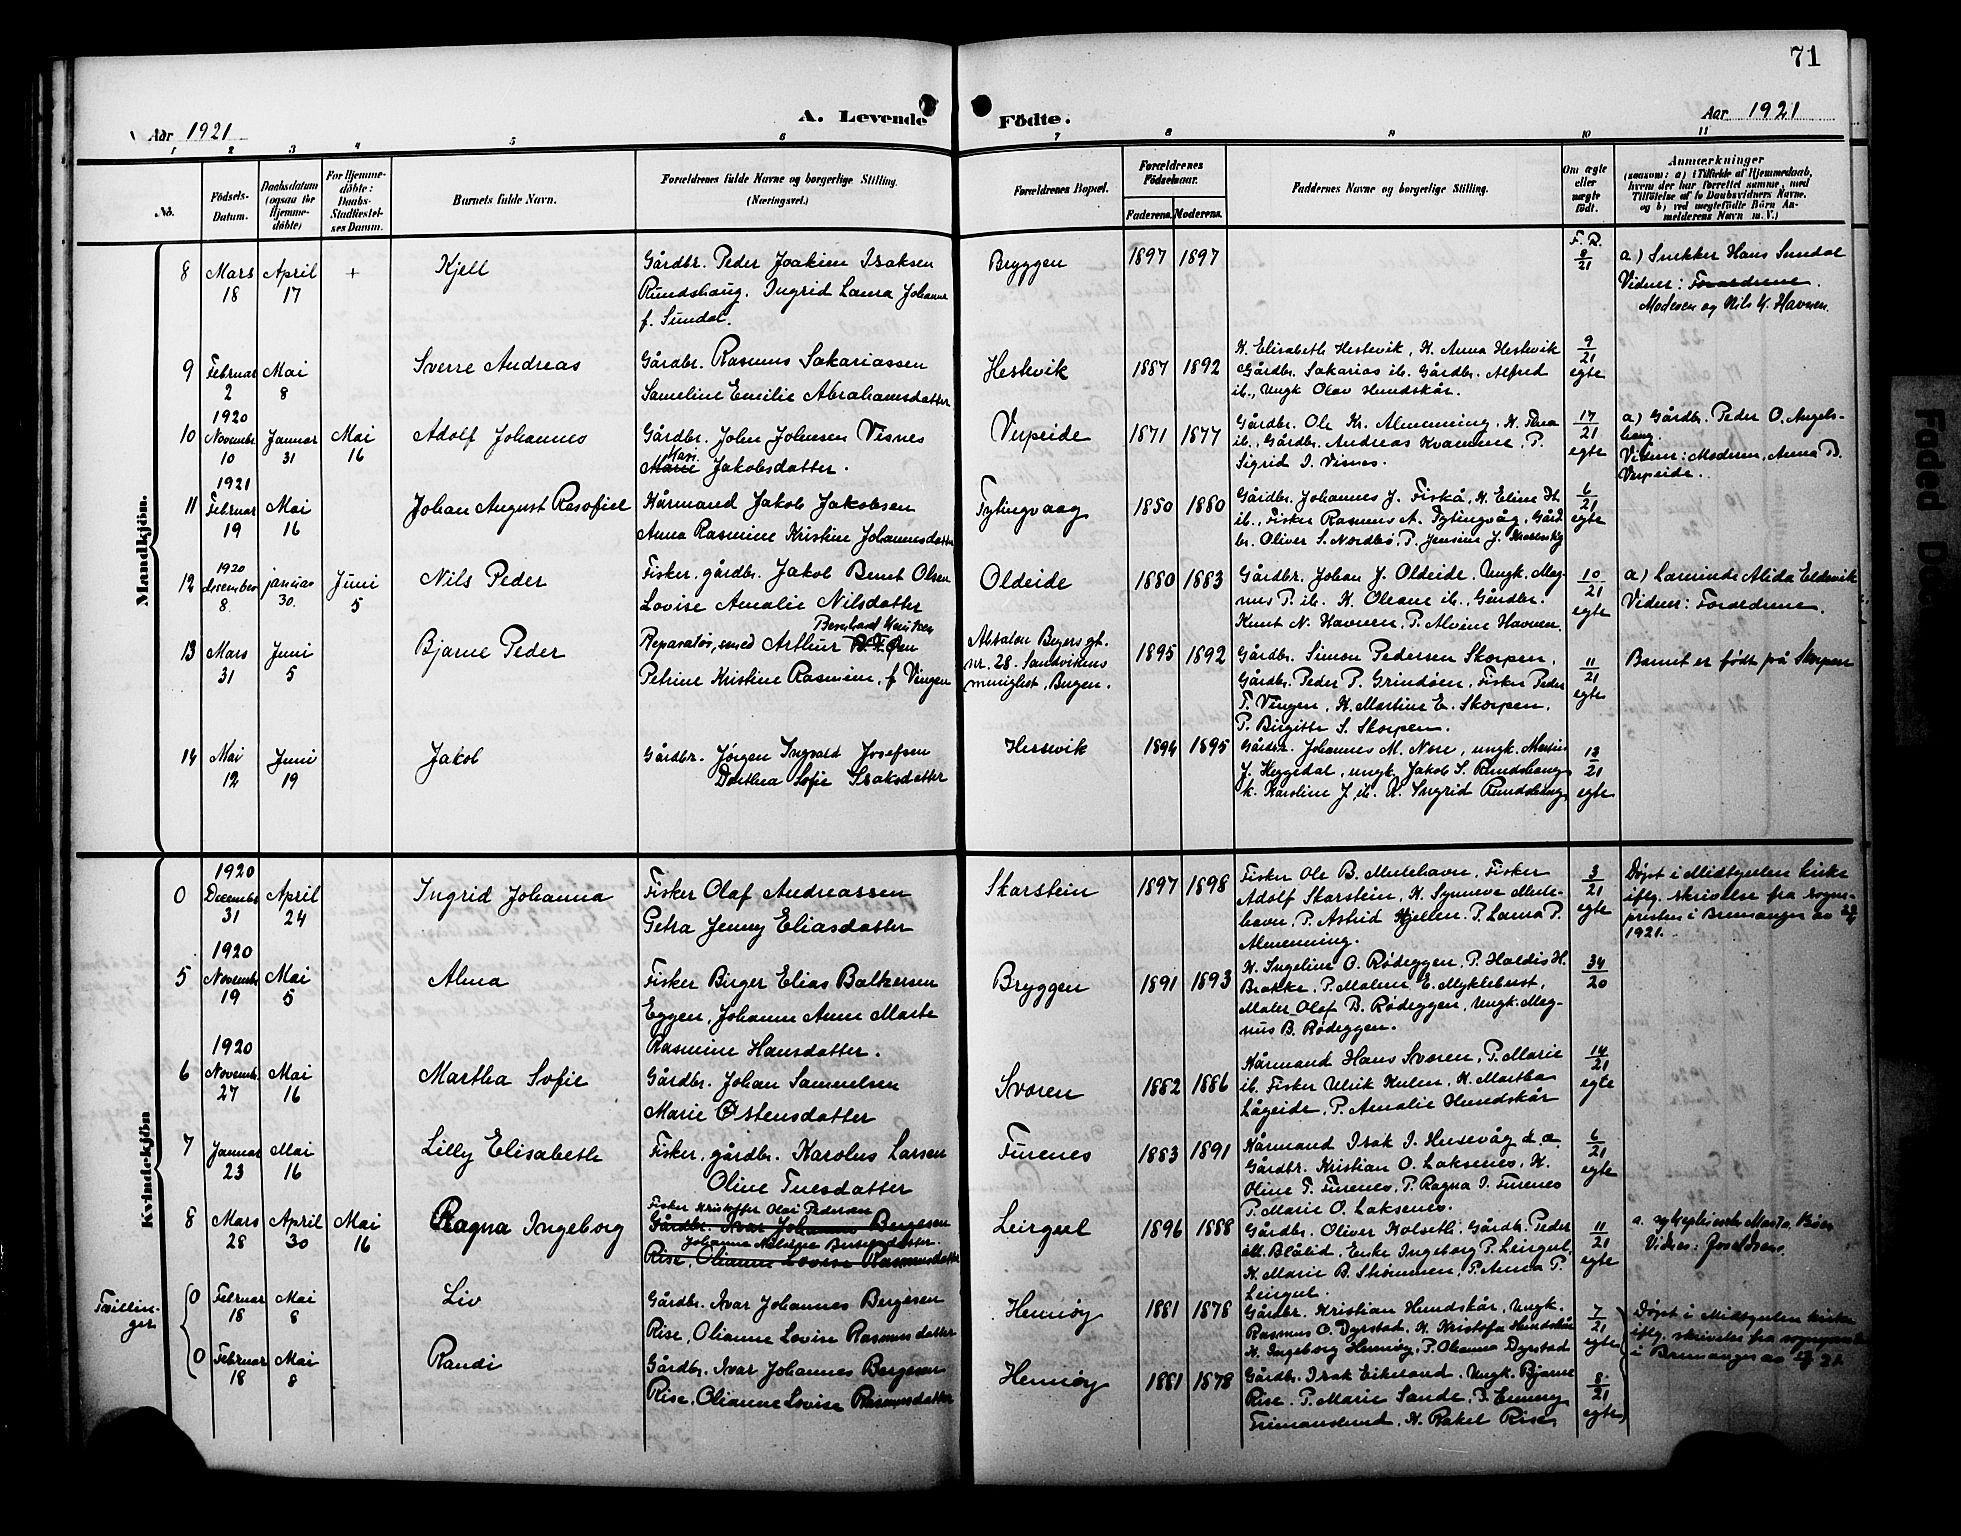 71
Aar 1921
A. Levende
Fødte.
Aar 1921
1 2 3 4 5 6 7 8 9 10 11
No.
Fødsels-
Datum.
Daabsdatum
(ogsaa for
Hjemme-
døbte)
For Hjemme-
døbte:
Daabs-
Stadfæstel-
ses Datum.
Barnets fulde Navn.
Forældrenes fulde Navne og borgerlige Stilling.
(Næringsvei.)
Forældrenes Bopæl.
Forældrenes
Fødselsaar.
Faderens. Moderens.
Faddernes Navne og borgerlige Stilling.
Om ægte
eller
uægte
født.
Anmærkninger
(saasom: a) i Tilfælde af Hjemmedaab,
hvem der har forrettet samme, med
Tilføielse af to Daabsvidners Navne,
og b) ved uægtefødte Børn An-
melderens Navn m. V.)
Mandkjön.
8 Mars 18 April 17 + Kjell
Gårdbr. Peder Joakim Isaksen
Rundshaug. Ingrid Laura Johanne
f. Sundal.
Bryggen 1897 1897
F. R.
8/21
a) Snekker Hans Sundal
Vidner: Foraldrene.
Moderen og Nils K. Havnen.
9 Februar 2 Mai 8 Sverre Andreas
Gårdbr. Rasmus Sakariassen
Sameline Emilie Abrahamsdatter
Hestvik 1887 1892
K. Elisabeth Hestevik, K. Anna Hestvik
Gårdbr. Sakarias ib. Gårdbr. Alfred
ib., Ungk Olav Hundskår.
9/21 egte
1920
10 Novembr. 10 Januar 31 Mai 16 Adolf Johannes
Gårdbr. John Johnsen Visnes
Mari
Marie Jakobsdatter.
Verpeide 1871 1877
Gårdbr. Ole Kr. Almenning, K. Thea
ib., Gårdbr. Andreas Kvamme, P.
Sigrid I. Visnes.
17/21 egte
a) Gårdbr. Peder O. Angels-
haug.
Vidner: Moderen, Anna D.
Verpeide.
1921
11 Februar 19 Mai 16 Johan August Rasofiel
Kårmand Jakob Jakobsen
Anna Rasmine Kristine Johannesdatter
Fytingvaag 1850 1880
Gårdbr. Johannes J. Fiskå, K. Eline Dt.
ib., Fisker Rasmus A. Fytingvåg, Gård
br. Oliver S. Nordbø, P. Jensine J.
6/21 egte
1920
12 December 8. januar 30. Juni 5 Nils Peder
Fisker, gårdbr. Jakob Bernt Olsen
Lovise Amalie Nilsdatter
Oldeide 1880 1883
Gårdbr. Johan J. Oldeide, Ungk. Mag-
nus P. ib. K. Oleane ib., Gårdbr.
Knut N. Havnen, P. Alvine Havnen.
10/21 egte
a) Larsinde Alida Eldevik
Vidner: Foraldrene.
13 Mars 31 Juni 5 Bjarne Peder
Bernhard Knutsen
Reparatør, smed Arthur
Petrine Kristine Rasmine, f Vingen
Absalon Beyers gt.
nr. 28. Sandvikens
menighet, Bergen.
1895 1892
Gårdbr. Simon Pedersen Skorpen,
Gårdbr. Peder P. Grindøen, Fisker Peder
T. Vingen, K. Martine E. Skorpen,
P. Birgitte S. Skorpen.
11/21 egte
Barnet er født på Skorpen
14 Mai 12 Juni 19 Jakob
Gårdbr. Jørgen Ingvald Josefsen
Dorthea Sofie Isaksdatter
Hessvik 1894 1895
Gårdbr. Johannes M. Nore, ungk. Martin
J. Heggedal, ungk. Jakob S. Rundshaug
k. Karoline J. ib. K. Ingrid Rundshaug
13/21 egte
Kvindekjön
1920
0 December 31 April 24 Ingrid Johanna
Fisker Olaf Andreassen
Petra Jenny Eliasdatter
Skarstein 1897 1898
Fisker Ole B. Mulehavn, Fisker
Adolf Skarstein, K. Synneva Mule-
havn, P. Astrid Kjellen, P. Laura P.
Almenning.
3/21 egte
Døpt i Midtgulen kirke
iflg. skrivelse fra sogne-
presten i Bremanger av
1921.
1920
5 Novembr 19 Mai 5 Alma
Fisker Birger Elias Balkersen
Eggen, Johanne Anne Marte
Rasmine Hansdatter.
Bryggen 1891 1893
K. Ingeline O. Rødeggen, P. Haldis H.
Brakke, P. Malene E. Myklebust,
Maler Olaf B. Rødeggen, Ungk. Mag-
nus B. Rødeggen.
34/20
1920
6 Novembr. 27 Mai 16 Martha Sofie
Gårdbr. Johan Samuelsen
Marie Østensdatter
Svoren 1882 1886
Kårmand Hans Svoren, P. Marie
ib. Fisker Ulrik Hulen, K. Martha
Lågeide, P. Amalie Hundskår
14/21 egte
7 Januar 23 Mai 16 Lilly Elisabeth
Fisker, gårdbr. Karolus Larsen
Oline Tuesdatter
Furenes 1883 1891
Kårmand Isak I. Husevåg d. æ.
Gårdbr. Kristian O. Laksenes, K.
Oline T. Furenes, P. Ragna I. Furenes
P. Marie O. Laksenes.
6/21 egte
8 Mars 28 April 30 Mai 16 Ragna Ingeborg
Fisker Kristoffer Olai Pedersen
Gårdbr. Ivar Johannes Bergesen
Johanne
Rise, Olianne Lovise Rasmusdatter
Leirgul 1896 1888
Gårdbr. Oliver Kolseth, Gårdb. Peder
Blålid, Enke Ingeborg P. Leirgul,
K. Marie B. Strømmen, P. Anna P.
Leirgul.
11/21 egte
a. Marta Bøen
Vidner: foreldrene.
Tvillin-
ger
0 Februar 18 Mai 8 Liv
Gårdbr. Ivar Johannes Bergesen
Rise, Olianne Lovise Rasmusdatter
Hennøy 1881 1878
Gårdbr. Kristian Hundskår, Ungk.
Rasmus O. Dyrstad, K. Kristofa Hundskår
K. Ingeborg Hennøy, P. Oleanna Dyrstad
7/21 egte
Døpt i Midtgulen kirke
iflg. skrivelse fra sognepresten
i Bremanger av
0 Februar 18 Mai 8 Randi
Gårdbr. Ivar Johannes Bergesen
Rise, Olianne Lovise Rasmusdatter
Hennøy 1881 1878
Gårdbr. Isak Eikeland, Ungk. Bjarne
Rise, P. Marie Sande, P. Emmy
Frimanslund, K. Rakel Rise
8/21 egte
Faded Doc